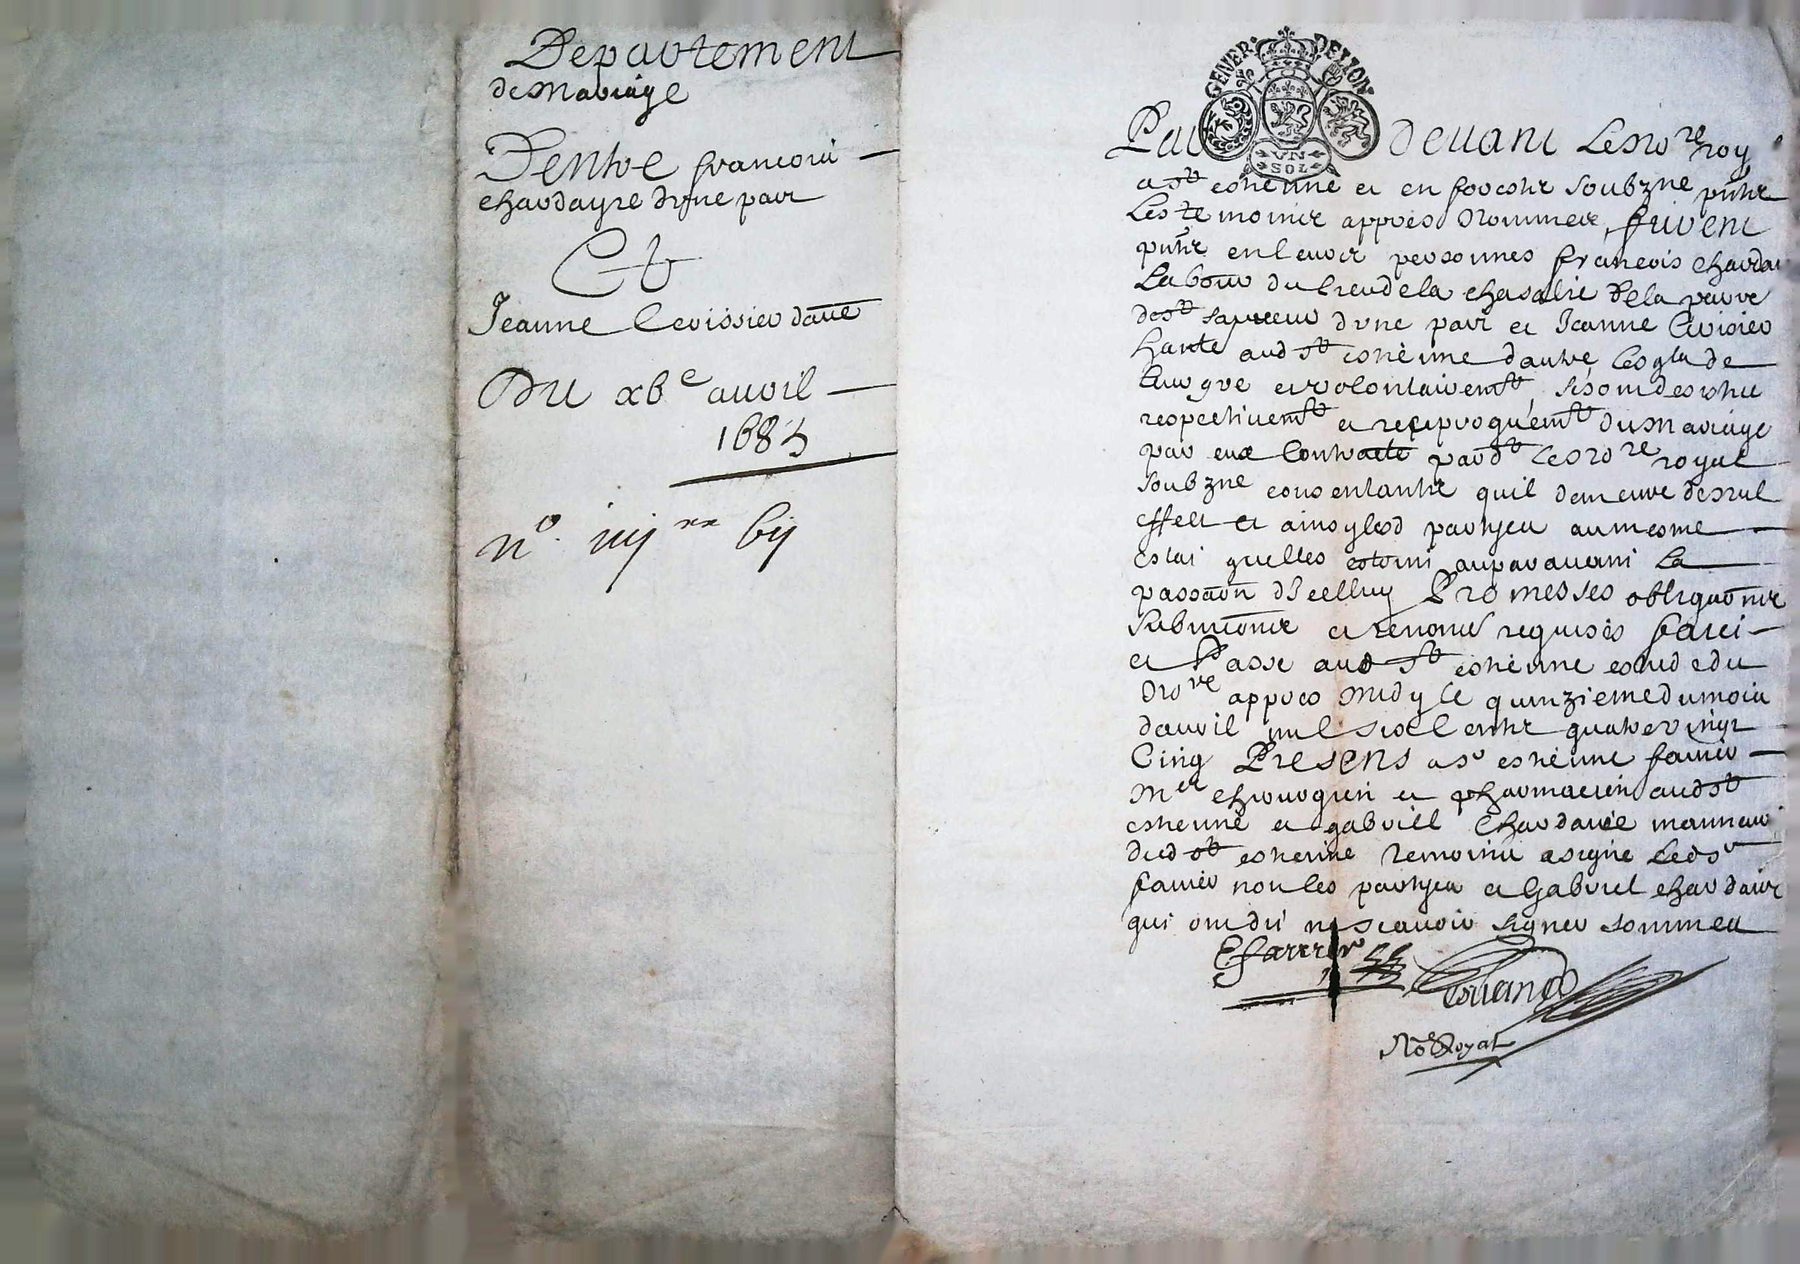 Departement
de mariage
Dentre francois
chardayre d'vne part
Et
Jeanne Cevissier dautre
Du xve auvril
1685
n° iiij xx vij
GENER. DE LION
VN
SOL
Par devant Le no.re roy
a st estienne et en forestz soubzne pntz
Les temoinz appres nommez, furent
pntz en leurs personnes francois charda
Labour du lieu de la chasalie de la parre
de st sauveur d'vne part et Jeanne
hante aud st estienne dautre Lesqls de
leur gre et volontairemt, se sont desistez
respectivemt et recipvoquemt du mariage
par eux contracte pard.t le no.re royal
soubzne consentantz quil demeure de nul
effect et ainsy lesd partyes au mesme
estat quelles estoint auparavant La
passaon d'Icelluy Promesses obligaonz
submiaonz et renonc requises faict
et Passe aud st estienne estude du
no.re appres midy le quinzieme du mois
dauvril mil six centz quatre vingt
Cinq Presens a st estienne farrier
Mre chirurgien et pharmacien aud st
estienne et gabriell chardaire
dud st estienne temoins a signe Led sr
farrier non les partyes et Gabriel chardair
qui ont dit ne scavoir signer sommez
E farrier
No.re Royal